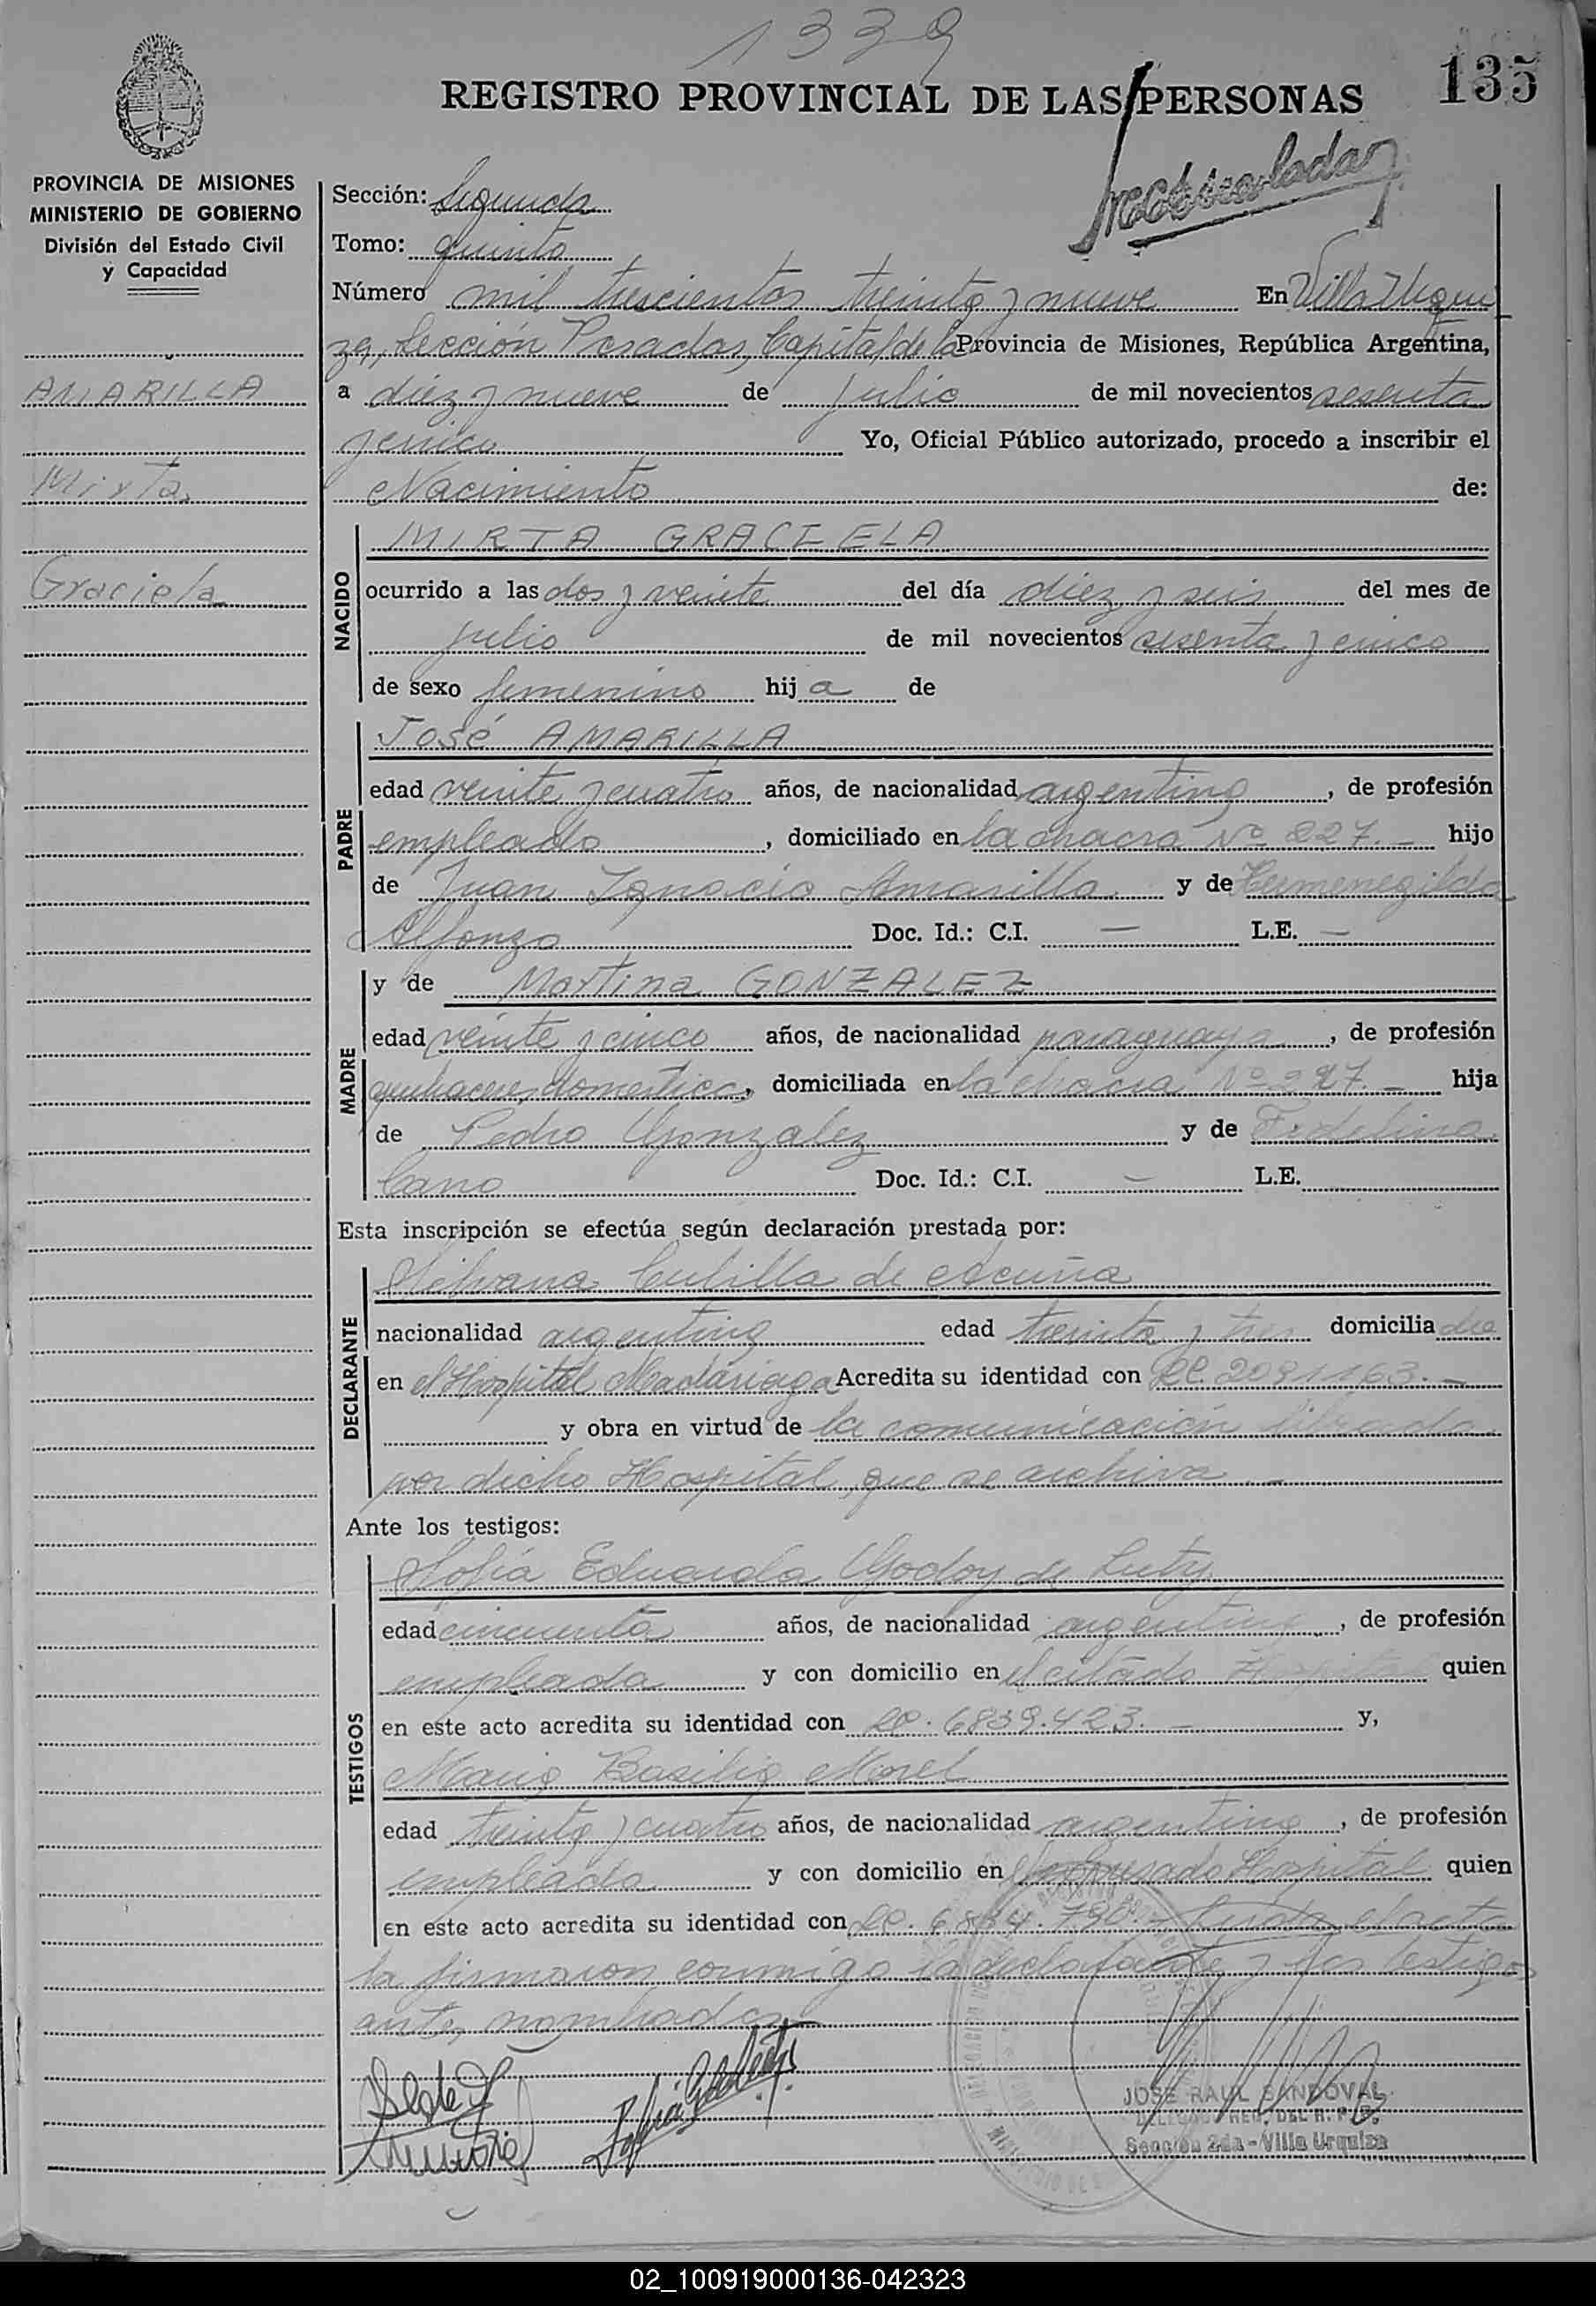 1339
REGISTRO PROVINCIAL DE LAS PERSONAS
135
Matriculada
PROVINCIA DE MISIONES
MINISTERIO DE GOBIERNO
División del Estado Civil
y Capacidad
AMARILLA
Mirta
Graciela
Sección: Segunda
Tomo: quinto
Número mil trescientos treinta y nueve En Villa Urqui
za, Sección Posadas, Capital de la Provincia de Misiones, República Argentina,
a diez y nueve de julio de mil novecientos sesenta
y cinco Yo, Oficial Público autorizado, procedo a inscribir el
Nacimiento de:
NACIDO
MIRTA GRACIELA
ocurrido a las dos y veinte del día diez y seis del mes de
julio de mil novecientos sesenta y cinco
de sexo femenino hija de
PADRE
José AMARILLA
edad veinte y cuatro años, de nacionalidad argentina, de profesión
empleado, domiciliado en la chacra Nº 227.- hijo
de Juan Ignacio Amarilla y de Hermenegilda
Alfonzo Doc. Id.: C.I. — L.E. —
MADRE
y de Martina GONZALEZ
edad veinte y cinco años, de nacionalidad paraguaya, de profesión
quehaceres domesticos, domiciliada en la chacra Nº 227.- hija
de Pedro Gonzalez y de Fidelina
Cano Doc. Id.: C.I. — L.E.
Esta inscripción se efectúa según declaración prestada por:
DECLARANTE
Silvana Cubilla de Acuña
nacionalidad argentina edad treinta y tres domiciliada
en el Hospital Madariaga Acredita su identidad con LC. 2091163.-
y obra en virtud de la comunicación librada
por dicho Hospital, que se archiva.-
Ante los testigos:
TESTIGOS
Sofía Eduarda Godoy de
edad cincuenta años, de nacionalidad argentina, de profesión
empleada y con domicilio en el citado Hospital quien
en este acto acredita su identidad con LC. 6839.423.- y,
Basilia Morel
edad treinta y cuatro años, de nacionalidad argentina, de profesión
empleada y con domicilio en el expresado Hospital quien
en este acto acredita su identidad con LC. Leída el acta
la firmaron conmigo la declarante y los testigos
antes nombrados
JOSE RAUL SANDOVAL
DELEGADO REG. DEL R. P. P.
Sección 2da - Villa Urquiza
02_100919000136-042323